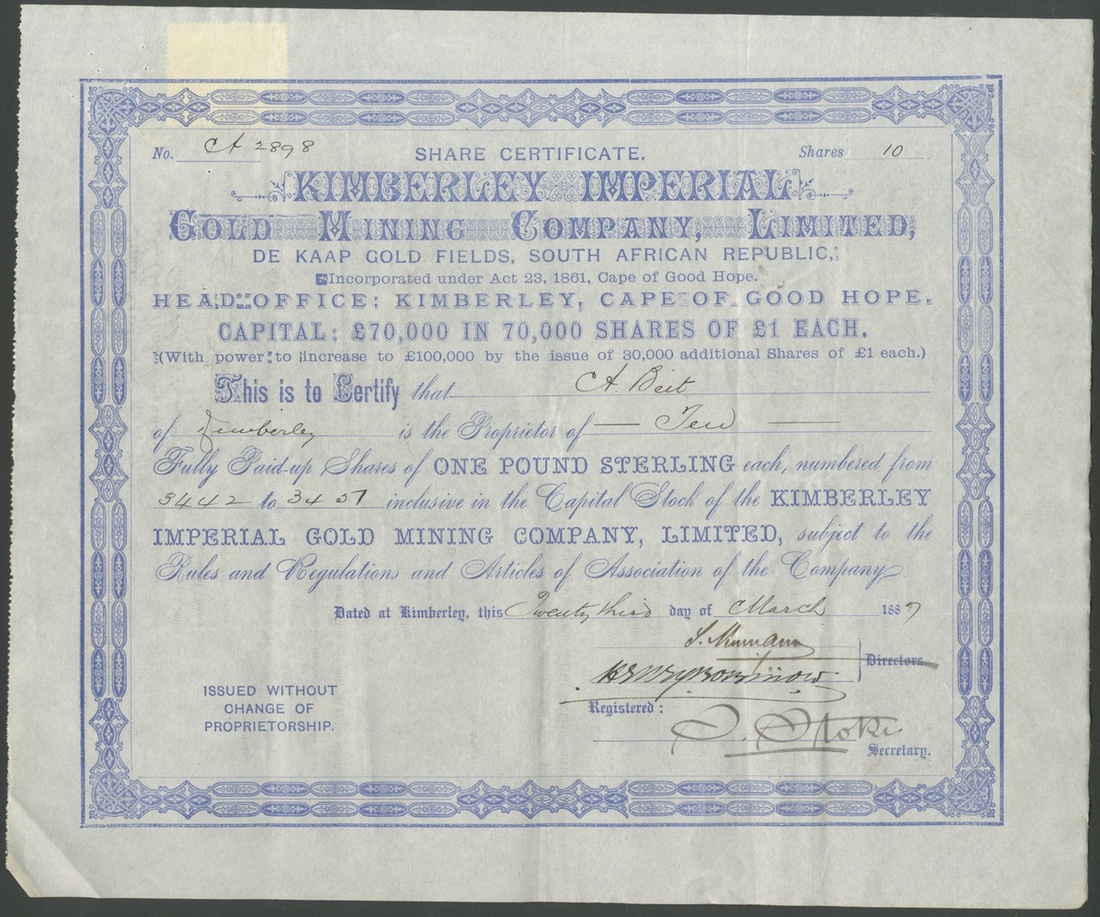 No. CA 2898 SHARE CERTIFICATE. Shares 10
KIMBERLEY IMPERIAL
GOLD MINING COMPANY, LIMITED,
DE KAAP GOLD FIELDS, SOUTH AFRICAN REPUBLIC,
Incorporated under Act 23, 1861, Cape of Good Hope.
HEAD OFFICE: KIMBERLEY, CAPE OF GOOD HOPE.
CAPITAL: £70,000 IN 70,000 SHARES OF £1 EACH.
(With power to increase to £100,000 by the issue of 30,000 additional Shares of £1 each.)
This is to Certify that A. Beit
of Kimberley is the Proprietor of — Ten —
Fully Paid-up Shares of ONE POUND STERLING each, numbered from
3442 to 3451 inclusive in the Capital Stock of the KIMBERLEY
IMPERIAL GOLD MINING COMPANY, LIMITED, subject to the
Rules and Regulations and Articles of Association of the Company
Dated at Kimberley, this Twenty third day of March 1887
Directors
ISSUED WITHOUT
CHANGE OF
PROPRIETORSHIP.
Registered:
Secretary.